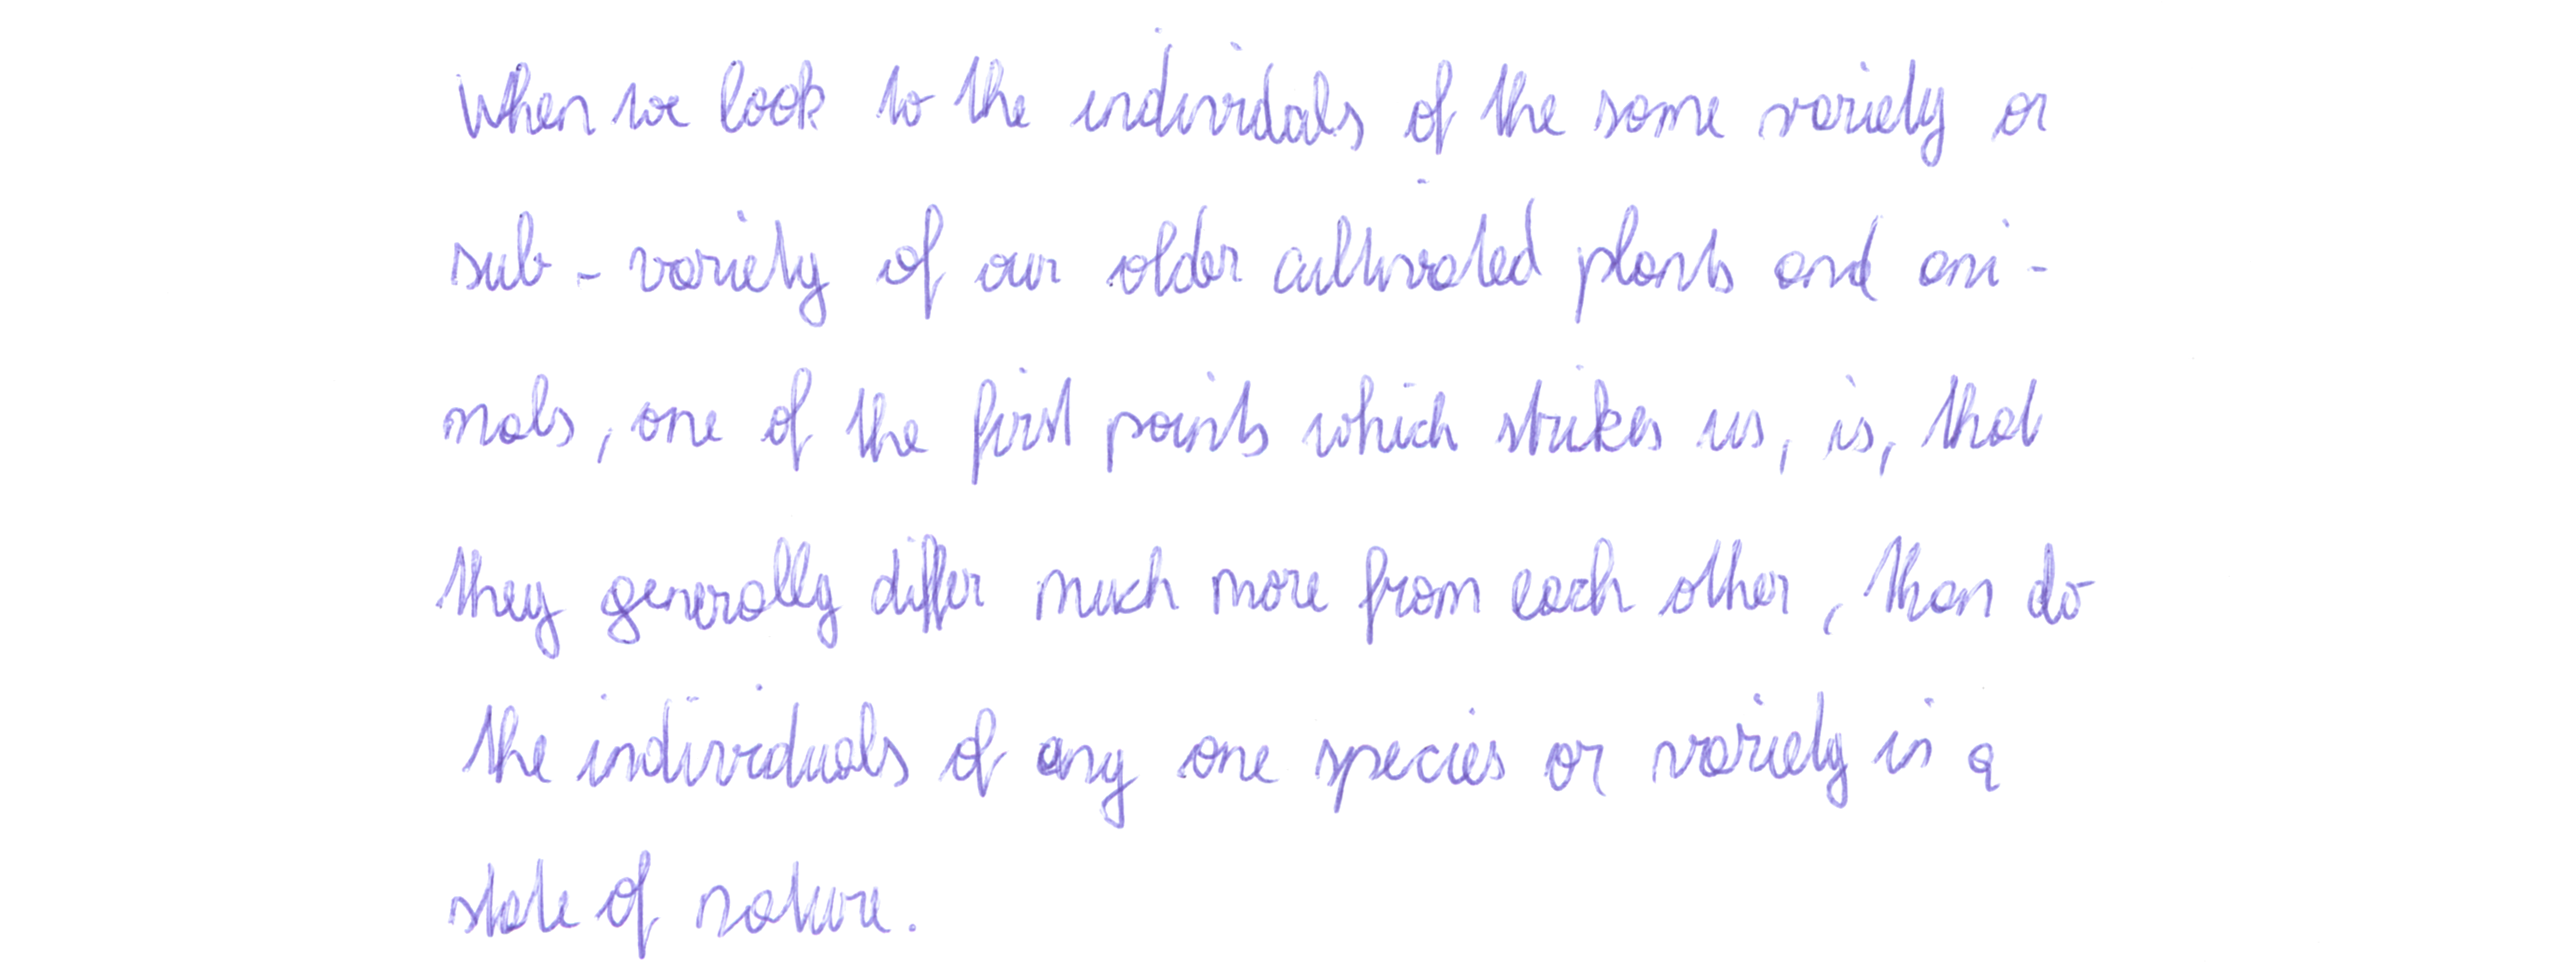 When we look to the individals of the same variety or
sub-variety of our older cultivated plants and ani-
mals, one of the first points which strikes us, is, that
they generally differ much more from each other, than do
the individuals of any one species or variety in a
state of nature.